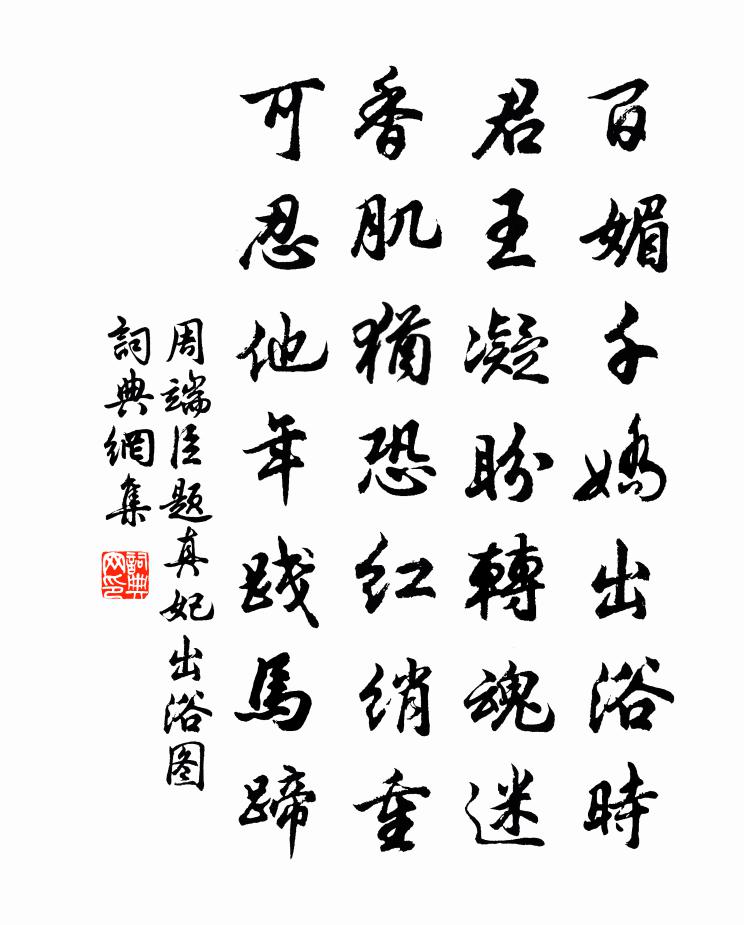 百媚千嬌出浴時
君王凝盼轉魂迷
香肌猶恐紅綃重
可忍他年踐馬蹄
周端臣题真妃出浴图
詞典網集
詞典网印